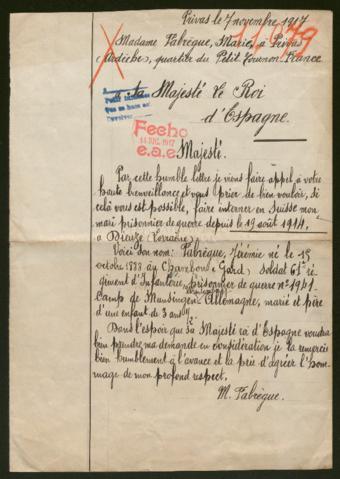 Privas le 7 novembre 1917
Madame Fabrègue, Marie, à Privas
(Ardèche), quartier du Petit Tournon. France
a Sa Majesté le Roi
d'Espagne.
Fecho
14 DIC. 1917
e.a.e.
Majesté.
Par cette humble lettre je viens faire appel à votre
haute bienveillance et vous prier de bien vouloir, si
celà vous est possible, faire interner en Suisse mon
mari prisonnier de guerre depuis le 19 août 1914.
a Dieuze (Lorraine)
Voici son nom: Fabrègue, Jérémie né le 15
octobre 1888 au Chambon (Gard) soldat 61e ré
giment d'Infanterie, prisonnier de guerre n° 1941
Camp de Munsingen Allemagne, marié et père
d'une enfant de 3 ans 1/2
Dans l'espoir que Sa Majesté roi d'Espagne voudra
bien prendre ma demande en considération je la remercie
bien humblement à l'avance et la prie d'agréer l'hom-
mage de mon profond respect.
M. Fabrègue.